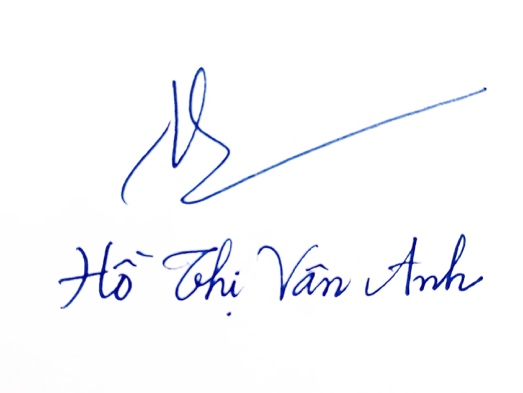 Hồ Thị Vân Anh